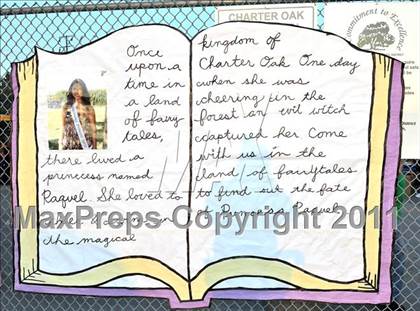 CHARTER OAK
Commitment to Excellence
Once
upon a
time in
a land
of fairy
tales,
there lived a
princess named
Raquel. She loved to
in
the magical
kingdom of
Charter Oak One day
when she was
cheering in the
forest an evil witch
captured her Come
with us in the
land of fairytales
to find out the fate
of Princess Raquel
MaxPreps Copyright 2011